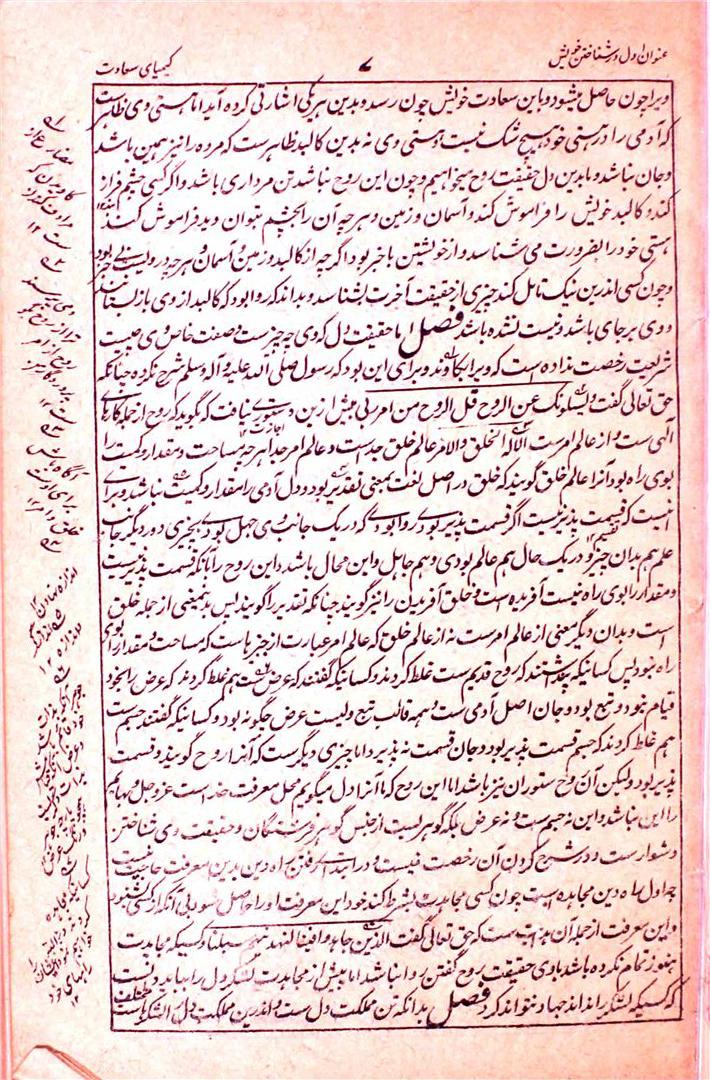 عنوان اول در شناختن خویش
۷
کیمیای سعادت
ویرا چون حاصل میشود و باین سعادت خویش چون رسد و بدین هر یکی اشارتی کرده آید اما هستی وی ظاهرست
که آدمی را در هستی خود هیچ شک نیست و هستی وی نه بدین کالبد ظاهرست که مرده را نیز همین باشد
و جان نباشد و ما بدین دل حقیقت روح میخواهیم و چون این روح نباشد تن مرداری باشد و اگر کسی چشم فراز
کند و کالبد خویش را فراموش کند و آسمان و زمین و هر چه آن را بچشم بتوان دید فراموش کند
هستی خود را بضرورت می شناسد و از خویشتن باخبر بود اگر چه از کالبد و زمین و آسمان و هر چه در ویست بی خبر بود
و چون کسی اندرین نیک تامل کند چیزی از حقیقت آخرت بشناسد و بداند که روا بود که کالبد از وی باز ستانند
و وی بر جای باشد و نیست نشده باشد فصل اما حقیقت دل که وی چه چیزست و صفت خاص وی چیست
شریعت رخصت نداده است که ویرا بکاوند و برای این بود که رسول صلی الله علیه و آله وسلم شرح نکرده چنانکه
حق تعالی گفت و یسئلونک عن الروح قل الروح من امر ربی بیش ازین دستوری نیافت که گوید که روح از جمله کارهای
الهی ست و از عالم امرست الا له الخلق والامر عالم خلق جداست و عالم امر جدا هر چه مساحت و مقدار و کمیت را
بوی راه بود آنرا عالم خلق گویند که خلق در اصل لغت بمعنی تقدیر بود و دل آدمی را مقدار و کمیت نباشد و برای
اینست که قسمت پذیر نیست اگر قسمت پذیر بودی روا بودی که در یک جانب وی جهل بودی بچیزی و در دیگر جانب
علم هم بدان چیز و در یک حال هم عالم بودی و هم جاهل و این محال باشد و این روح را بآنکه قسمت پذیر نیست
و مقدار را بوی راه نیست آفریده است و خلق آفریدن را نیز گویند چنانکه تقدیر را گویند پس بدینمعنی از جمله خلق
است و بدان دیگر معنی از عالم امرست نه از عالم خلق که عالم امر عبارت از چیزهاست که مساحت و مقدار را بوی
راه نبود پس کسانیکه پنداشتند که روح قدیم ست غلط کردند و کسانیکه گفتند که عرض ست هم غلط کردند که عرض را بخود
قیام نبود و تبع بود و جان اصل آدمی ست و همه قالب تبع ویست عرض چگونه بود و کسانیکه گفتند جسم ست
هم غلط کردند که جسم قسمت پذیر بود و جان قسمت نه پذیرد اما چیزی دیگر ست که آنرا روح گویند و قسمت
پذیر بود ولیکن آن روح ستوران نیز باشد اما این روح که ما آنرا دل میگوییم محل معرفت خداست عز و جل و بهایم
را این نباشد و این نه جسم ست و نه عرض بلکه گوهریست از جنس گوهر فرشتگان و حقیقت وی شناختن
دشوارست و در شرح کردن آن رخصت نیست و در ابتدای رفتن راه دین بدین معرفت حاجت نیست
چه اول راه دین مجاهده است چون کسی مجاهدت بشرط کند خود این معرفت او را حاصل شود بی آنکه از کسی بشنود
و این معرفت از جمله آن هدایت ست که حق تعالی گفت الذین جاهدوا فینا لنهدینهم سبلنا و کسیکه مجاهدت
هنوز تمام نکرده باشد با وی حقیقت روح گفتن روا نباشد اما پیش از مجاهدت لشکر دل را بباید دانست
که کسیکه لشکر را نداند جهاد نتواند کرد فصل بدانکه تن مملکت دل ست و اندرین مملکت دل را لشکرهاست مختلف